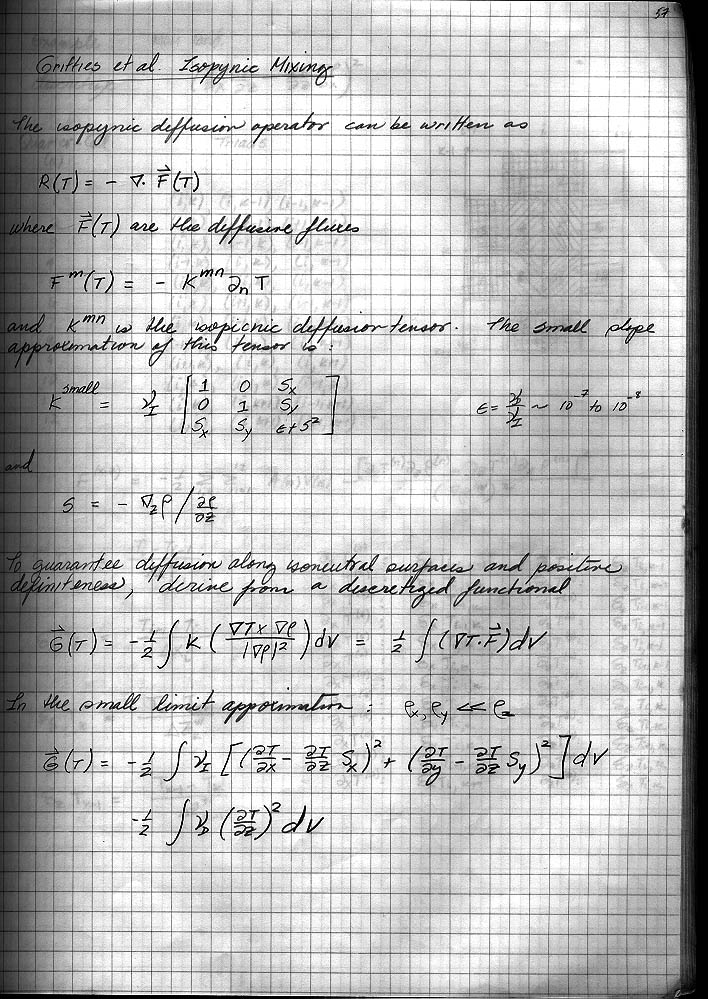 57
Griffies et al. Isopynic Mixing
The isopynic diffusion operator can be written as
R(T) = - ∇· F⃗(T)
where F⃗(T) are the diffusive fluxes
F^m(T) = - K^mn ∂_n T
and K^mn is the isopicnic diffusion tensor. The small slope
approximation of this tensor is:
K^small = ν_I [ 1 0 S_x
0 1 S_y
S_x S_y ε+S² ] ε = ν_D/ν_I ~ 10^-7 to 10^-8
and
S = - ∇_z ρ / ∂ρ/∂z
To guarantee diffusion along isoneutral surfaces and positive
definiteness, derive from a discretized functional
G⃗(T) = -1/2 ∫ K ( ∇T x ∇ρ / |∇ρ|² ) dV = 1/2 ∫ (∇T · F⃗) dV
In the small limit approximation : ρ_x, ρ_y << ρ_z
G⃗(T) = -1/2 ∫ ν_I [ (∂T/∂x - ∂T/∂z S_x)² + (∂T/∂y - ∂T/∂z S_y)² ] dV
-1/2 ∫ ν_D (∂T/∂z)² dV